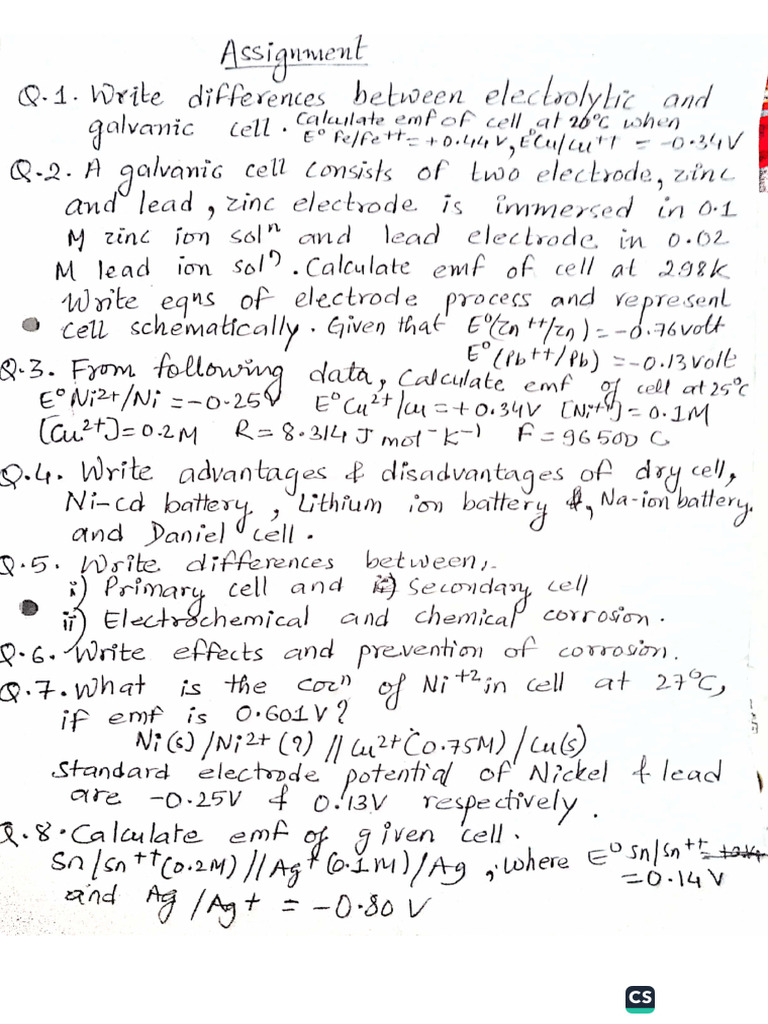 Assignment
Q.1. Write differences between electrolytic and
galvanic cell. Calculate emf of cell at 20°C when
E° Fe/Fe++ = +0.44V, E°Cu/Cu++ = -0.34V
Q.2. A galvanic cell consists of two electrode, zinc
and lead, zinc electrode is immersed in 0.1
M zinc ion solⁿ and lead electrode in 0.02
M lead ion solⁿ. Calculate emf of cell at 298k
Write eqns of electrode process and represent
cell schematically. Given that E°(Zn++/Zn) = -0.76volt
E°(Pb++/Pb) = -0.13volt
Q.3. From following data, Calculate emf of cell at 25°C
E°Ni2+/Ni = -0.25V E°Cu2+/Cu = +0.34V [Ni++] = 0.1M
[Cu2+] = 0.2M R = 8.314 J mol⁻K⁻¹ F = 96500 C
Q.4. Write advantages & disadvantages of dry cell,
Ni-Cd battery, Lithium ion battery &, Na-ion battery.
and Daniel cell.
Q.5. Write differences between,-
i) Primary cell and Secondary cell
ii) Electrochemical and chemical corrosion.
Q.6. Write effects and prevention of corrosion.
Q.7. What is the concⁿ of Ni+2 in cell at 27°C,
if emf is 0.601V?
Ni(s)/Ni2+(?)//Cu2+(0.75M)/Cu(s)
Standard electrode potential of Nickel & lead
are -0.25V & 0.13V respectively.
Q.8. Calculate emf of given cell.
Sn/Sn++(0.2M)//Ag+(0.1M)/Ag, where E° Sn/Sn++
= 0.14V
and Ag/Ag+ = -0.80 V
CS